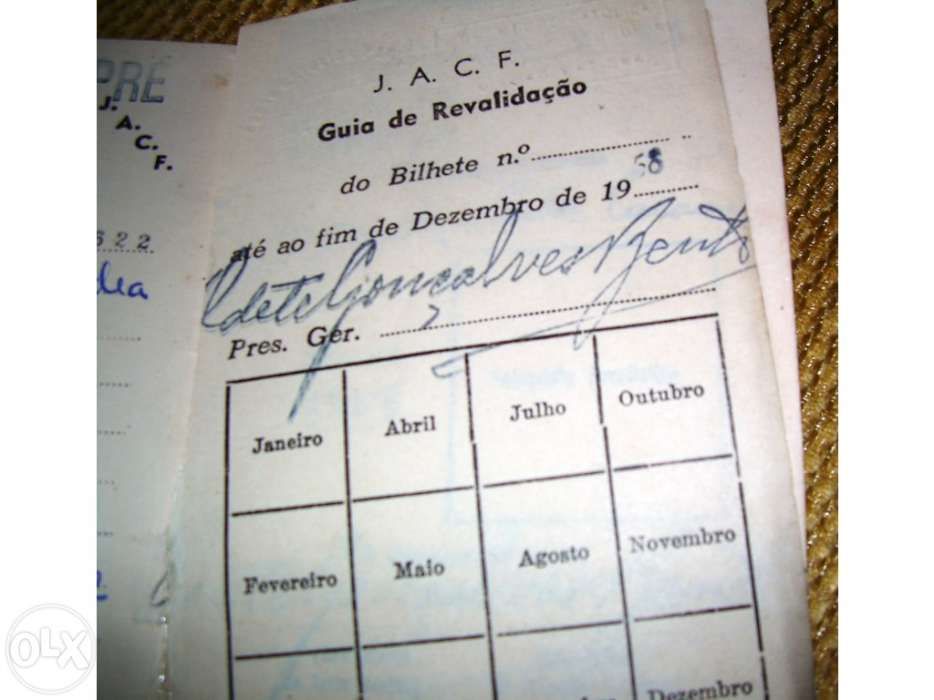 PRE
J.
A.
C.
F.
622
J. A. C. F.
Guia de Revalidação
do Bilhete n.º
até ao fim de Dezembro de 1958
Gonçalves Bento
Pres. Ger.
Janeiro Abril Julho Outubro
Fevereiro Maio Agosto Novembro
Dezembro
OLX